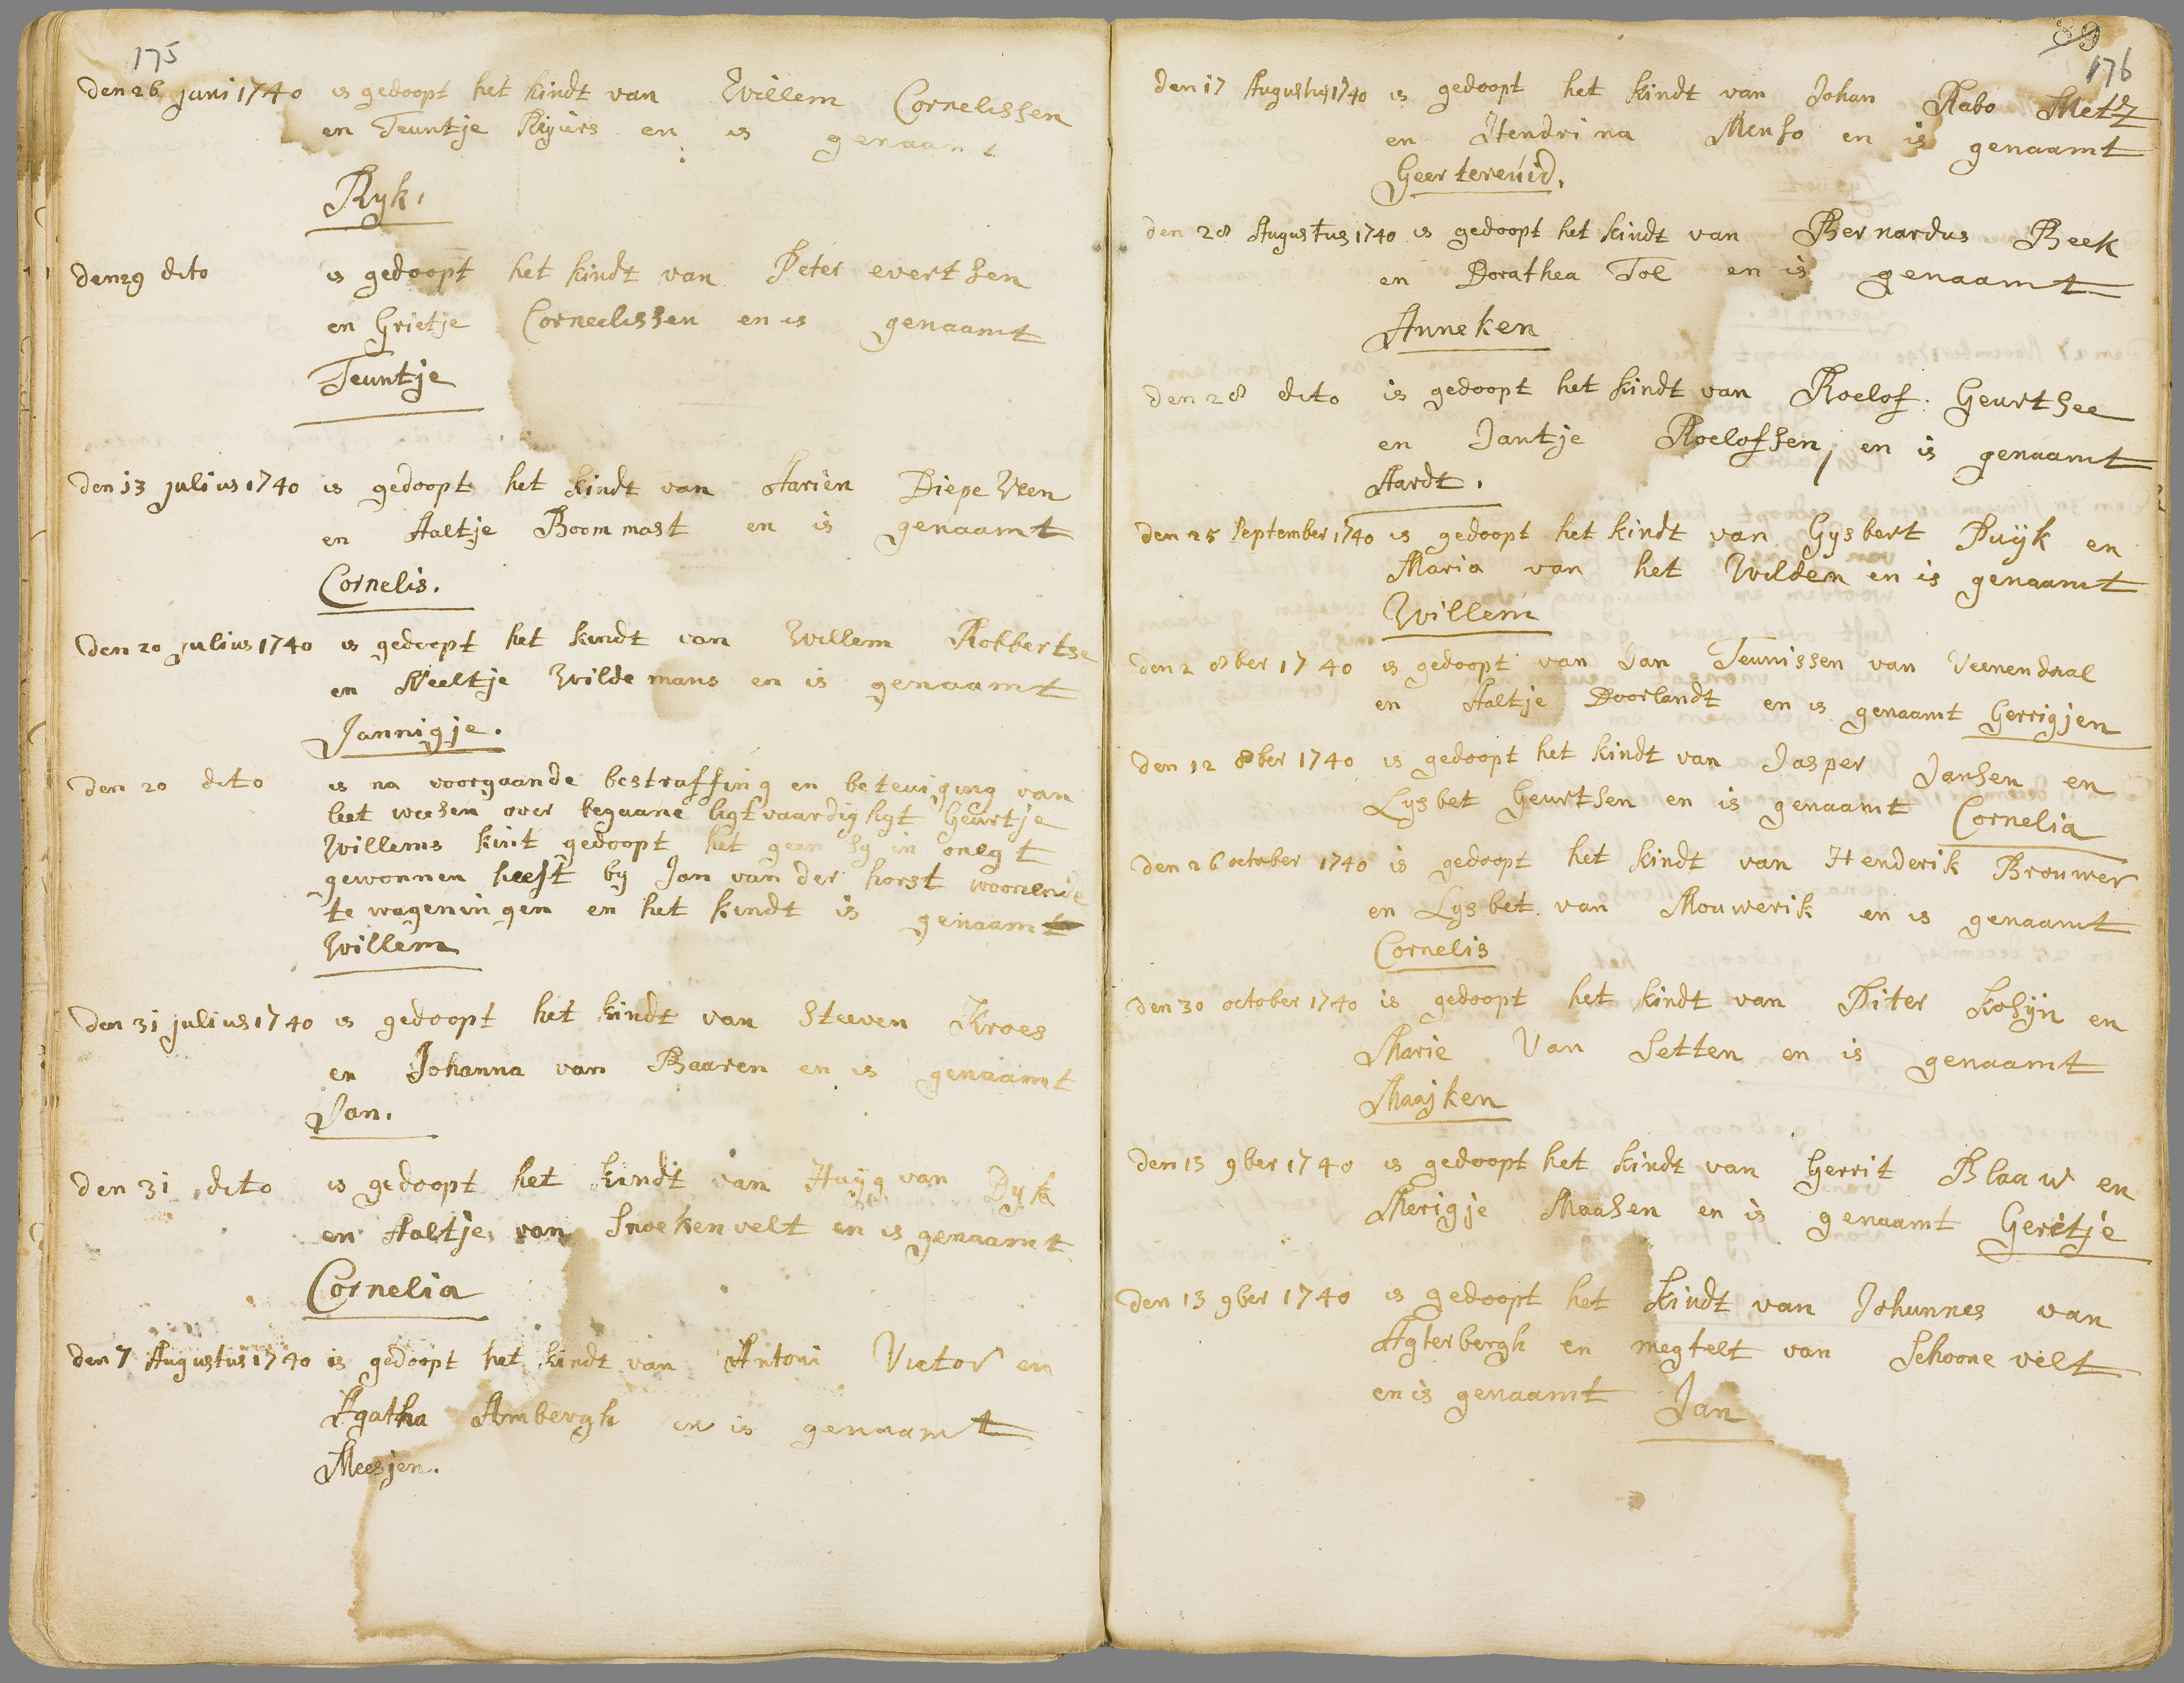 175
den 26 juni 1740 is gedoopt het kindt van Willem Cornelissen
en Teuntje Reijers en is genaamt
Ryk.
den 29 dito is gedoopt het kindt van Peter evertsen
en Grietje Corneelissen en is genaamt
Teuntje
den 13 julius 1740 is gedoopt het kindt van Aarien Diepeveen
en Aaltje Boommast en is genaamt
Cornelis.
den 20 julius 1740 is gedoopt het kindt van Willem Robbertse
en Neeltje Wildemans en is genaamt
Jannigje.
den 20 dito is na voorgaande bestraffing en beteuiging van
leet weesen over begaane ligtvaardighyt Geurtje
Willems kint gedoopt het geen sy in onegt
gewonnen heeft by Jan van der horst woonende
te wageningen en het kindt is genaamt
Willem
den 31 julius 1740 is gedoopt het kindt van Steeven Kroes
en Johanna van Baaren en is genaamt
Jan.
den 31 dito is gedoopt het kindt van Huijg van Dyk
en Aaltje van Snoekenvelt en is genaamt
Cornelia
den 7 Augustus 1740 is gedoopt het kindt van Antoni Victor en
Agatha Ambergh en is genaamt
Meesjen.
89
176
den 17 Augustus 1740 is gedoopt het kindt van Johan Rabo Metz
en Hendrina Menso en is genaamt
Geertereuid.
den 28 Augustus 1740 is gedoopt het kindt van Bernardus Beek
en Dorathea Tol en is genaamt
Anneken
den 28 dito is gedoopt het kindt van Roelof Geurtsee
en Jantje Roelofsen en is genaamt
Aardt.
den 25 September 1740 is gedoopt het kindt van Gysbert Puijk en
Maria van het Wilden en is genaamt
Willem
den 2 8ber 1740 is gedoopt van Jan Teunissen van Veenendaal
en Aaltje Doorlandt en is genaamt Gerrigjen
den 12 8ber 1740 is gedoopt het kindt van Jasper Jansen en
Lysbet Geurtsen en is genaamt Cornelia
den 26 october 1740 is gedoopt het kindt van Henderik Brouwer
en Lysbet van Mouwerik en is genaamt
Cornelis
den 30 october 1740 is gedoopt het kindt van Piter Kosijn en
Marie Van Setten en is genaamt
Maajken
den 13 9ber 1740 is gedoopt het kindt van Gerrit Blaauw en
Merigje Maasen en is genaamt Geritje
den 13 9ber 1740 is gedoopt het kindt van Johannes van
Agterbergh en megtelt van Schoonevelt
en is genaamt Jan